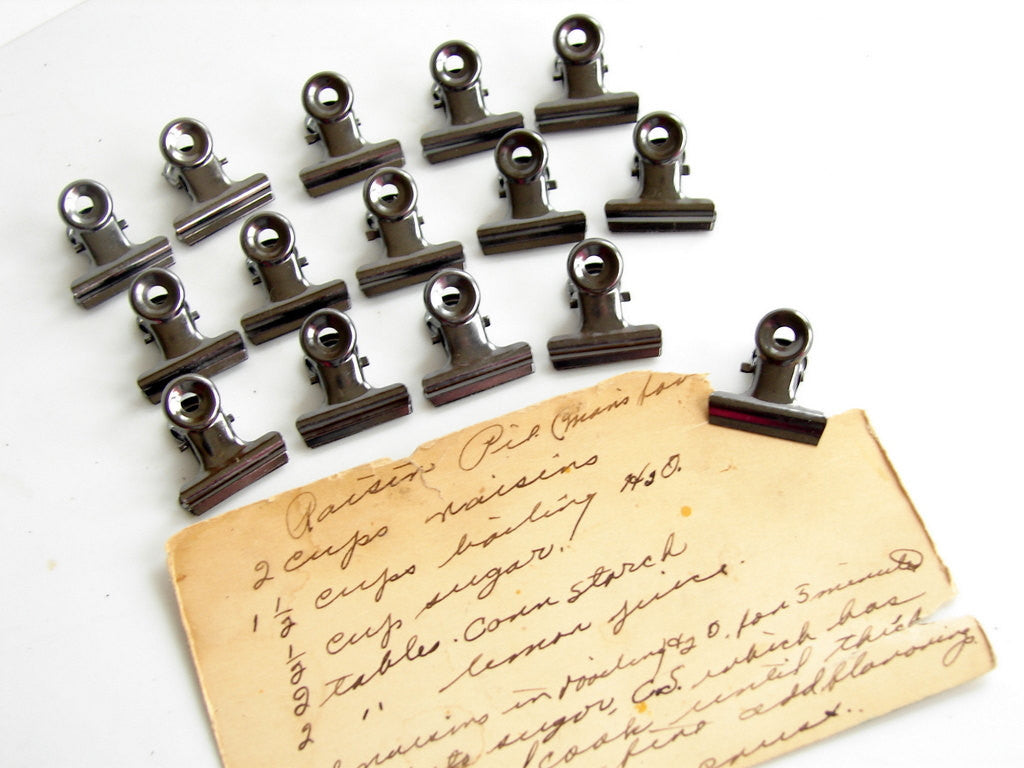 Raisin Pie (Man's fav
2 cups raisins
1 1/2 cups boiling H2O.
1/2 cup sugar.
2 tables. Corn Starch
2 " lemon juice.
raisins in boiling H2O. for 5 minutes
sugar, C.S. which has
cook until thick
add flavoring